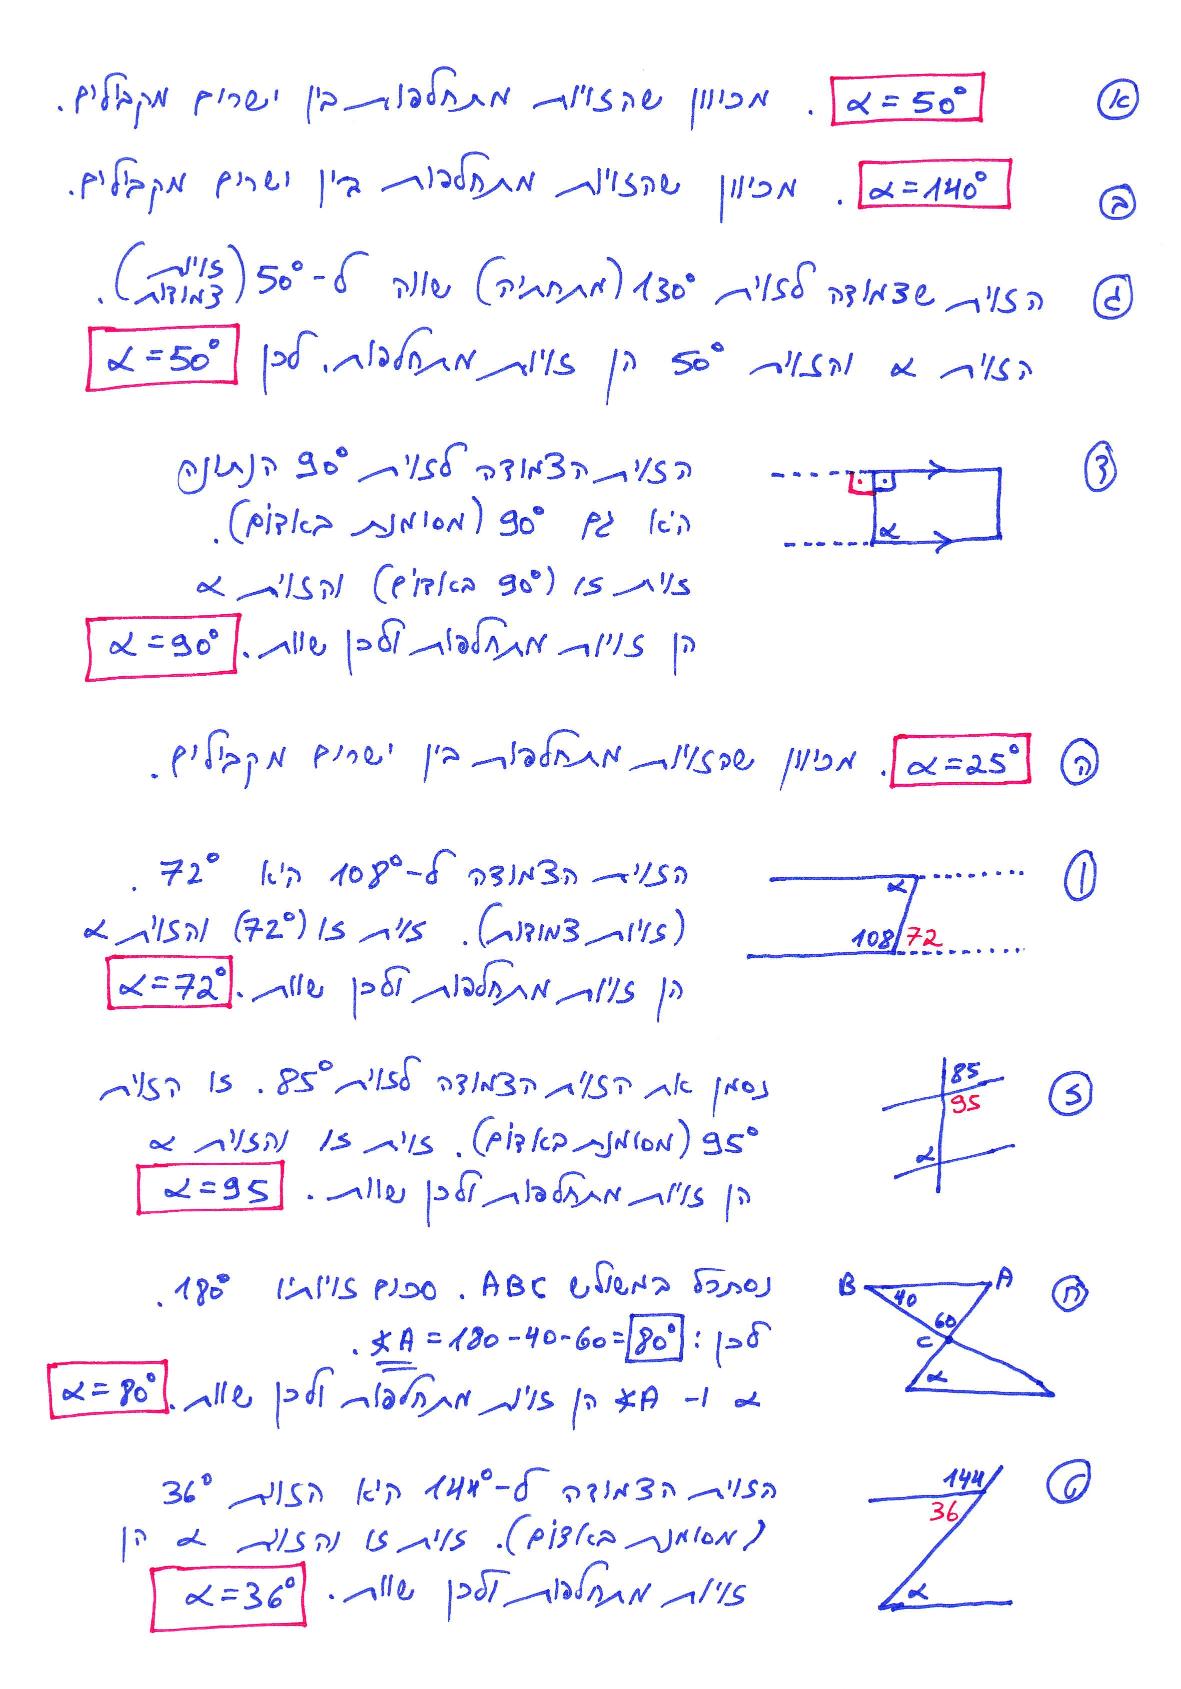 א α = 50° . מכיוון שהזויות מתחלפות בין ישרים מקבילים.
ב α = 140° . מכיוון שהזויות מתחלפות בין ישרים מקבילים.
ג הזוית שצמודה לזוית 130° (מתחתיה) שווה ל-50° (זויות צמודות).
הזוית α והזוית 50° הן זויות מתחלפות. לכן α = 50°
ד הזוית הצמודה לזוית 90° הנתונה
היא גם 90° (מסומנת באדום).
זוית זו (90° באדום) והזוית α
הן זויות מתחלפות ולכן שוות. α = 90°
α
ה α = 25° . מכיוון שהזויות מתחלפות בין ישרים מקבילים.
ו הזוית הצמודה ל-108° היא 72° .
(זויות צמודות). זוית זו (72°) והזוית α
הן זויות מתחלפות ולכן שוות. α = 72°
α
108 72
ז נסמן את הזוית הצמודה לזוית 85°. זו הזוית
95° (מסומנת באדום). זוית זו והזוית α
הן זויות מתחלפות ולכן שוות. α = 95
85
95
α
ח נסתכל במשולש ABC. סכום זויותיו 180°.
לכן: ∢A = 180 - 40 - 60 = 80° .
α ו- ∢A הן זויות מתחלפות ולכן שוות. α = 80°
B A
40
60
C
α
ט הזוית הצמודה ל-144° היא הזוית 36°
(מסומנת באדום). זוית זו והזוית α הן
זויות מתחלפות ולכן שוות. α = 36°
144
36
α